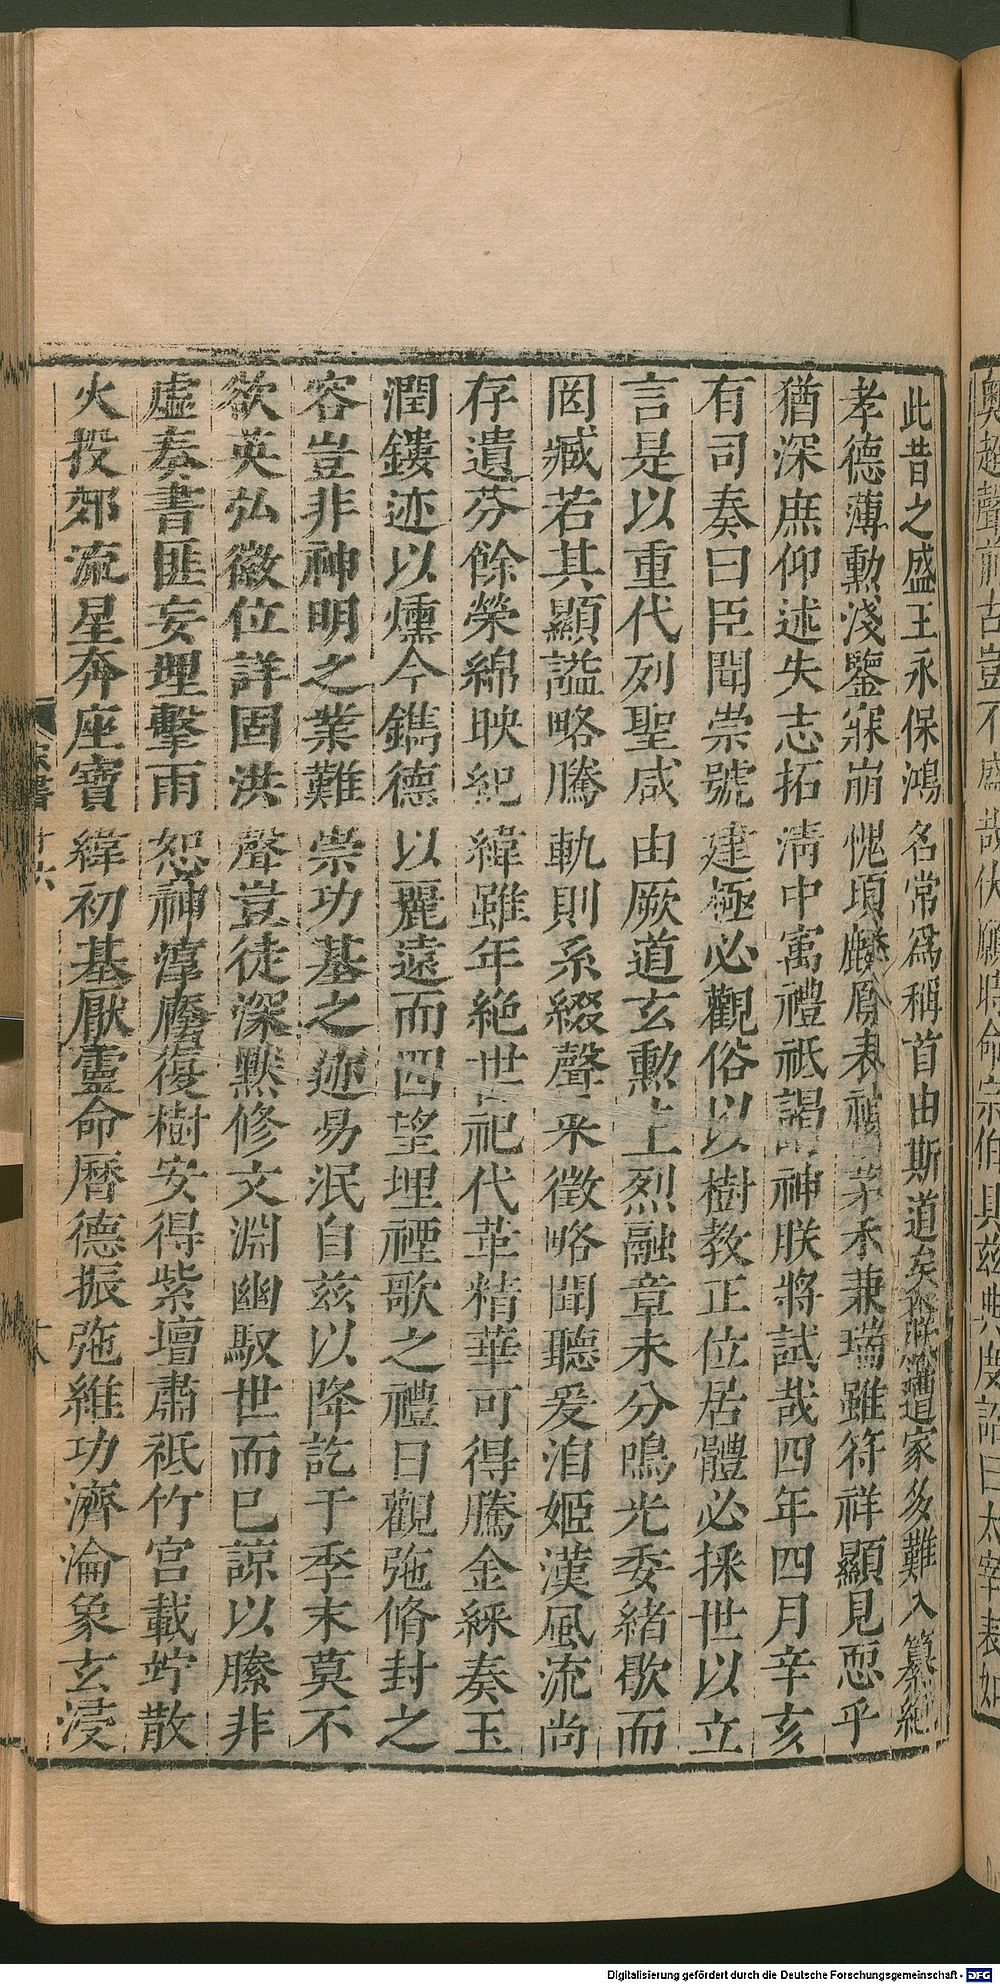 此昔之盛王永保鴻名常爲稱首由斯道矣 遭家多難入纂絶
孝德薄勳淺鑒寐崩愧項麟鳳表禎茅禾兼瑞雖符祥顯見恧乎
猶深庶仰述失志拓清中㝢禮祇謁神朕將試哉四年四月辛亥
有司奏曰臣聞崇號建極必觀俗以樹教正位居體必採世以立
言是以重代列聖咸由厥道玄勲上烈融章未分鳴光委緒歇而
罔臧若其顯謚略騰軌則系綴聲采徵略聞聽爰洎姬漢風流尚
存遺芬餘榮綿映紀緯雖年絶世祀代革精華可得騰金綵奏玉
潤鏤迹以燻今鐫德以麗遠而四望埋禋歌之禮日觀弛脩封之
容豈非神明之業難崇功基之迹易泯自兹以降訖于季末莫不
欲英弘徽位詳固洪聲豈徒深默修文淵幽馭世而已諒以縢非
虛奏書匪妄埋擊雨恕神淳廕復樹安得紫壇肅祇竹宮載竚散
火投郊流星奔座寶緯初基厭靈命曆德振弛維功濟淪象玄浸
宋書 十六
十八
Digitalisierung gefördert durch die Deutsche Forschungsgemeinschaft - DFG